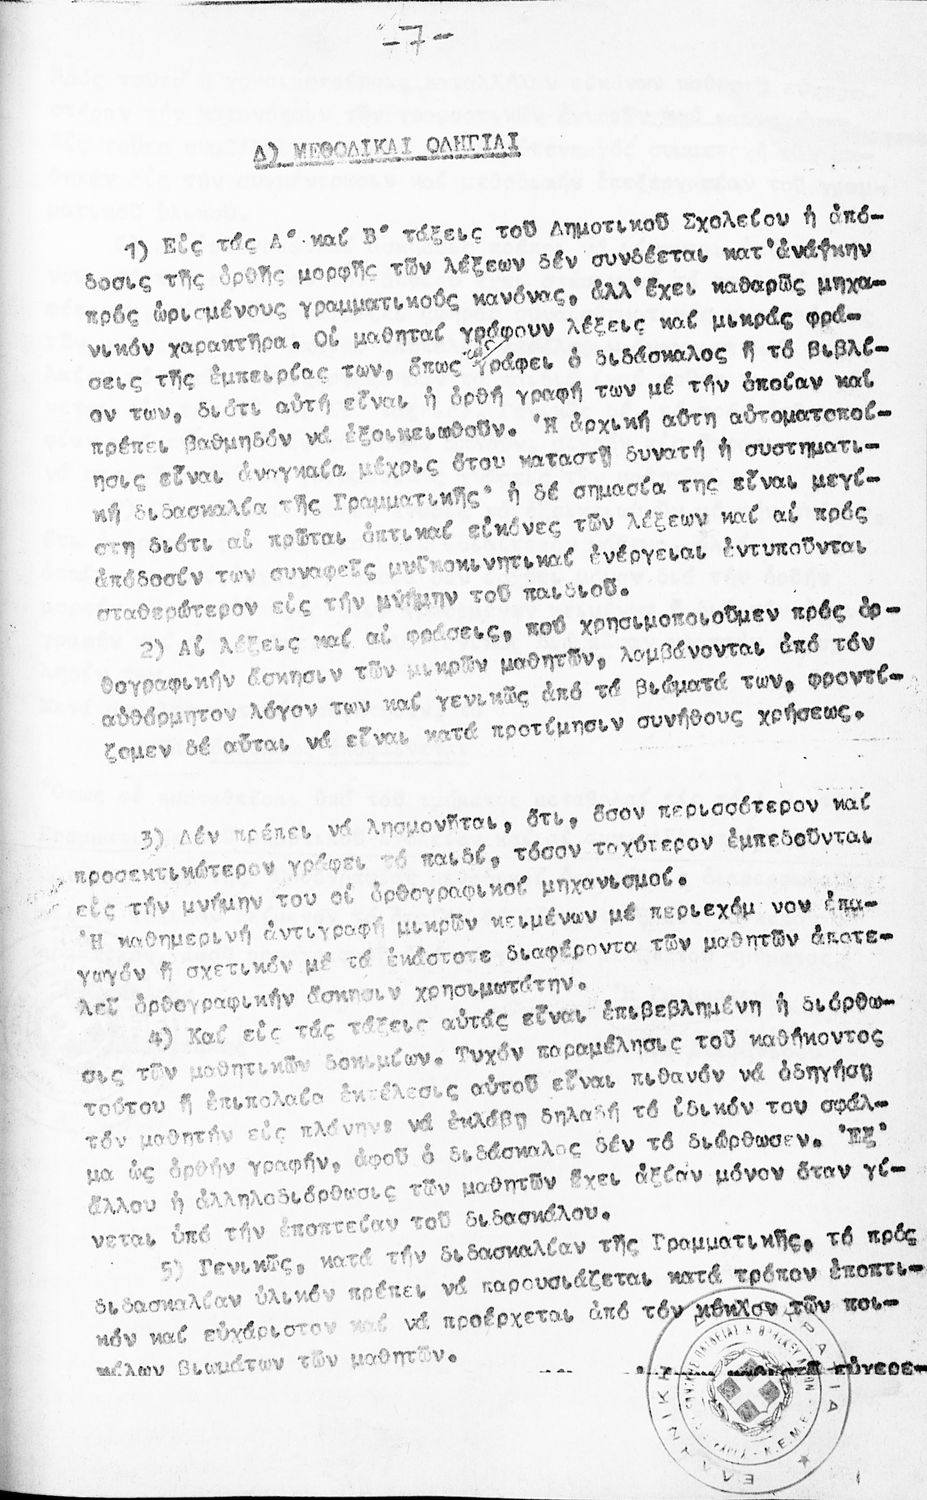 -7-
Δ) ΜΕΘΟΔΙΚΑΙ ΟΔΗΓΙΑΙ
1) Εἰς τάς Α΄ καί Β΄ τάξεις τοῦ Δημοτικοῦ Σχολείου ἡ ἀπό-
δοσις τῆς ὀρθῆς μορφῆς τῶν λέξεων δέν συνδέεται κατ᾽ἀνάγκην
πρός ὡρισμένους γραμματικούς κανόνας, ἀλλ᾽ἔχει καθαρῶς μηχα-
νικόν χαρακτῆρα. Οἱ μαθηταί γράφουν λέξεις καί μικράς φρά-
σεις τῆς ἐμπειρίας των, ὅπως τάς γράφει ὁ διδάσκαλος ἤ τό βιβλί-
ον των, διότι αὐτή εἶναι ἡ ὀρθή γραφή των μέ τήν ὁποίαν καί
πρέπει βαθμηδόν νά ἐξοικειωθοῦν. Ἡ ἀρχική αὕτη αὐτοματοποί-
ησις εἶναι ἀναγκαία μέχρις ὅτου καταστῇ δυνατή ἡ συστηματι-
κή διδασκαλία τῆς Γραμματικῆς· ἡ δέ σημασία της εἶναι μεγί-
στη διότι αἱ πρῶται ὀπτικαί εἰκόνες τῶν λέξεων καί αἱ πρός
ἀπόδοσίν των συναφεῖς μυϊκοκινητικαί ἐνέργειαι ἐντυποῦνται
σταθερώτερον εἰς τήν μνήμην τοῦ παιδιοῦ.
2) Αἱ λέξεις καί αἱ φράσεις, πού χρησιμοποιοῦμεν πρός ὀρ-
θογραφικήν ἄσκησιν τῶν μικρῶν μαθητῶν, λαμβάνονται ἀπό τόν
αὐθόρμητον λόγον των καί γενικῶς ἀπό τά βιώματά των, φροντί-
ζομεν δέ αὗται νά εἶναι κατά προτίμησιν συνήθους χρήσεως.
3) Δέν πρέπει νά λησμονῆται, ὅτι, ὅσον περισσότερον καί
προσεκτικώτερον γράφει τό παιδί, τόσον ταχύτερον ἐμπεδοῦνται
εἰς τήν μνήμην του οἱ ὀρθογραφικοί μηχανισμοί.
Ἡ καθημερινή ἀντιγραφή μικρῶν κειμένων μέ περιεχόμ νον ἐπα-
γωγόν ἤ σχετικόν μέ τά ἑκάστοτε διαφέροντα τῶν μαθητῶν ἀποτε-
λεῖ ὀρθογραφικήν ἄσκησιν χρησιμωτάτην.
4) Καί εἰς τάς τάξεις αὐτάς εἶναι ἐπιβεβλημένη ἡ διόρθω-
σις τῶν μαθητικῶν δοκιμίων. Τυχόν παραμέλησις τοῦ καθήκοντος
τούτου ἤ ἐπιπολαία ἐκτέλεσις αὐτοῦ εἶναι πιθανόν νά ὁδηγήσῃ
τόν μαθητήν εἰς πλάνην: νά ἐκλάβῃ δηλαδή τό ἰδικόν του σφάλ-
μα ὡς ὀρθήν γραφήν, ἀφοῦ ὁ διδάσκαλος δέν τό διώρθωσεν. Ἐξ᾽
ἄλλου ἡ ἀλληλοδιόρθωσις τῶν μαθητῶν ἔχει ἀξίαν μόνον ὅταν γί-
νεται ὑπό τήν ἐποπτείαν τοῦ διδασκάλου.
5) Γενικῶς, κατά τήν διδασκαλίαν τῆς Γραμματικῆς, τό πρός
διδασκαλίαν ὑλικόν πρέπει νά παρουσιάζεται κατά τρόπον ἐποπτι-
κόν καί εὐχάριστον καί νά προέρχεται ἀπό τόν κύκλον τῶν ποι-
κίλων βιωμάτων τῶν μαθητῶν.
εὐχερε-
Κ.Ε.Μ.Ε.